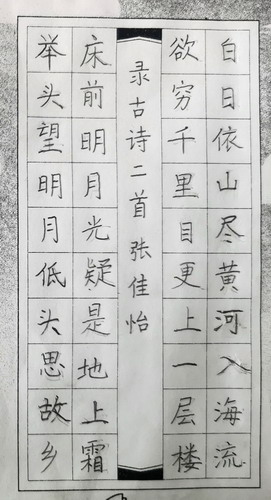 白日依山尽黄河入海流
欲穷千里目更上一层楼
录古诗二首 张佳怡
床前明月光疑是地上霜
举头望明月低头思故乡